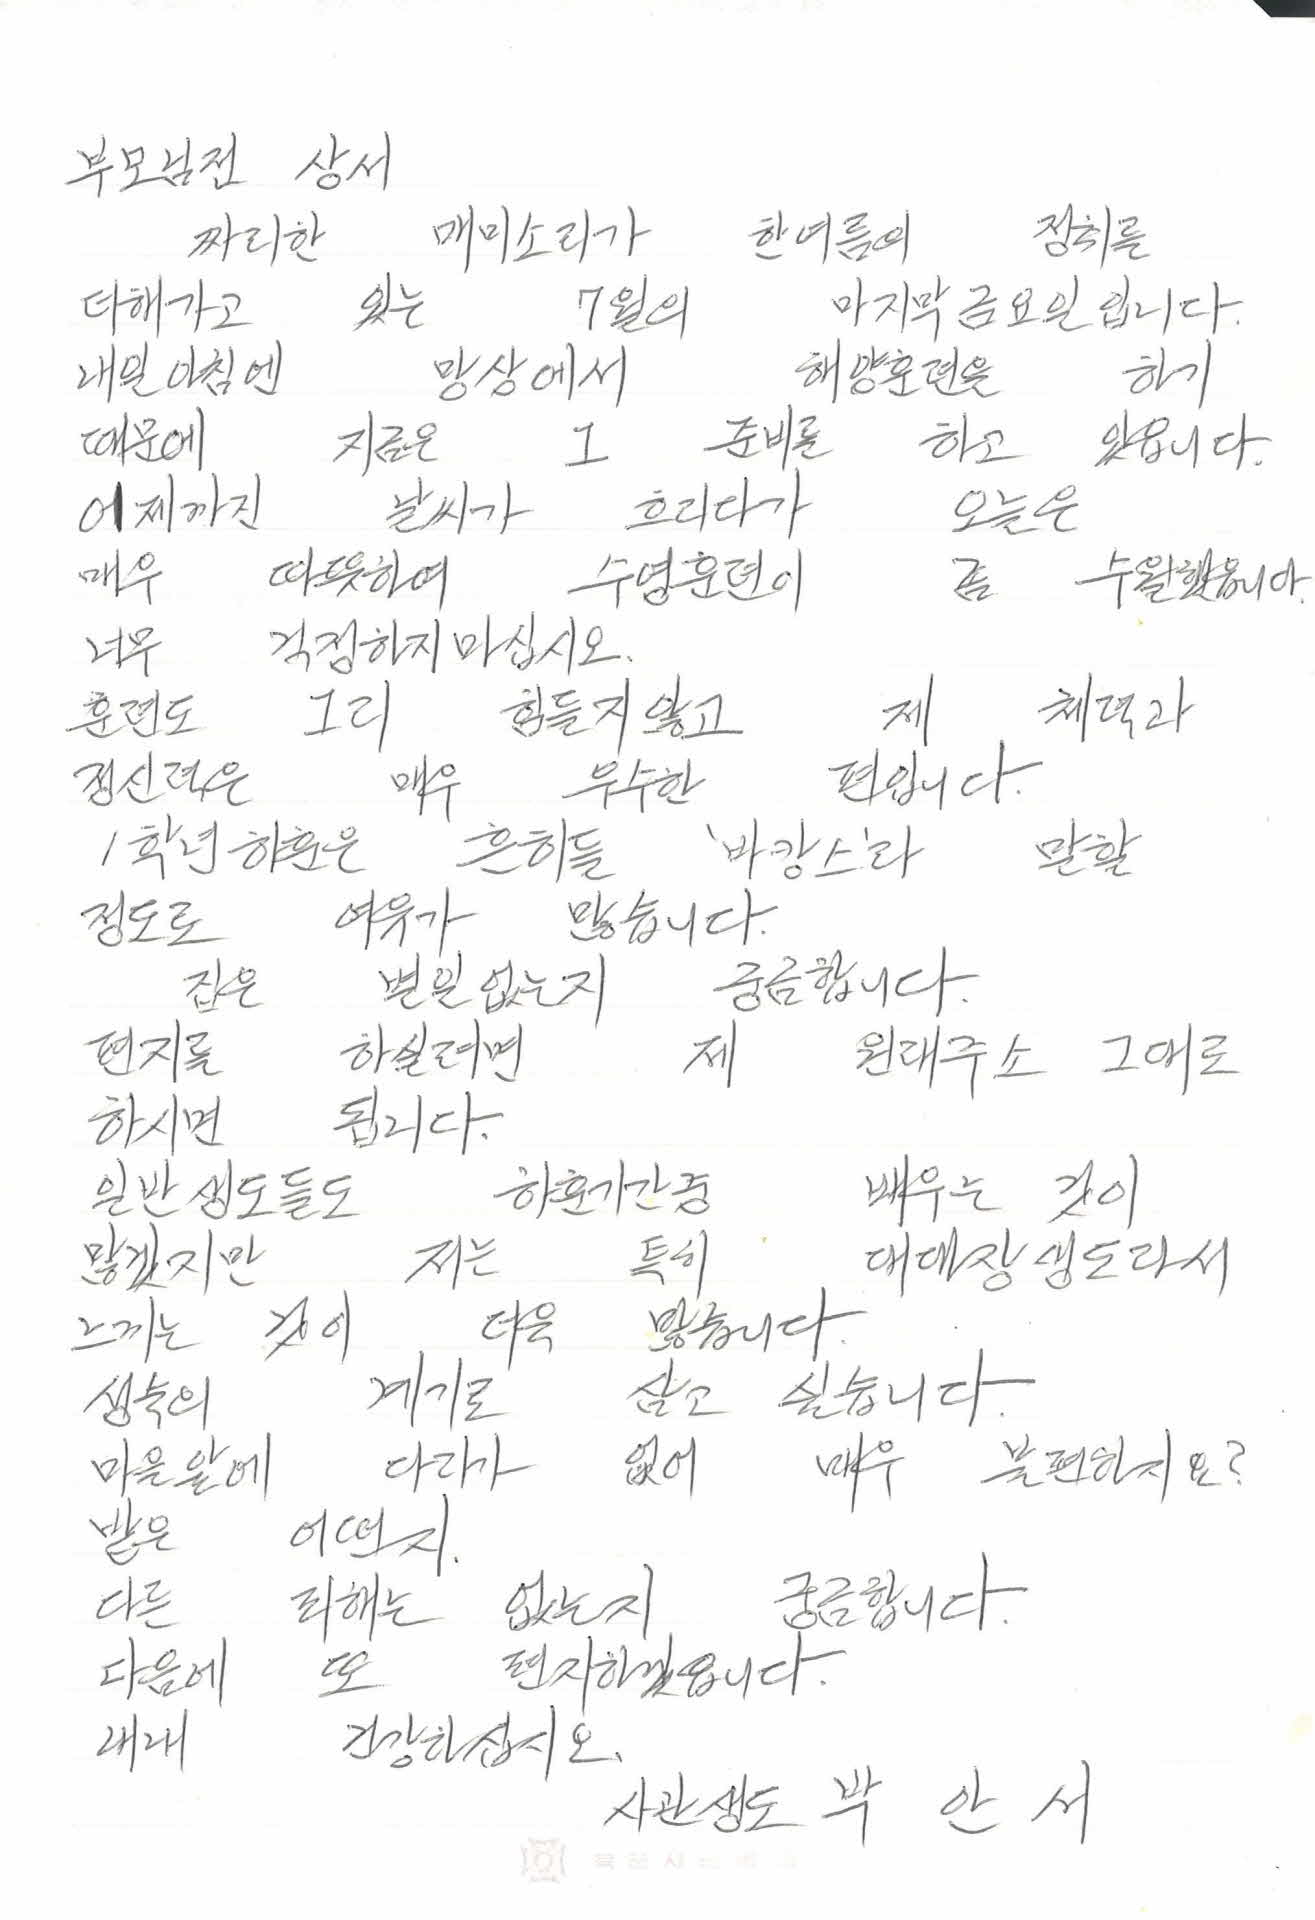 부모님전 상서
짜리한 매미소리가 한여름의 정취를
더해가고 있는 7월의 마지막 금요일입니다.
내일 아침엔 망상에서 해양훈련을 하기
때문에 지금은 그 준비를 하고 있읍니다.
어제까진 날씨가 흐리다가 오늘은
매우 따뜻하여 수영훈련이 좀 수월했읍니다.
너무 걱정하지 마십시오.
훈련도 그리 힘들지 않고 제 체력과
정신력은 매우 우수한 편입니다.
1학년 하훈은 흔히들 '바캉스'라 말할
정도로 여유가 많습니다.
집은 별일 없는지 궁금합니다.
편지를 하실려면 제 원대주소 그대로
하시면 됩니다.
일반생도들도 하훈기간중 배우는 것이
많겠지만 저는 특히 대대장생도라서
느끼는 것이 더욱 많습니다.
성숙의 계기로 삼고 싶습니다.
마을앞에 다리가 없어 매우 불편하지요?
밭은 어떤지.
다른 피해는 없는지 궁금합니다.
다음에 또 편지하겠읍니다.
내내 건강하십시오.
사관생도 박 안 서
육군사관학교